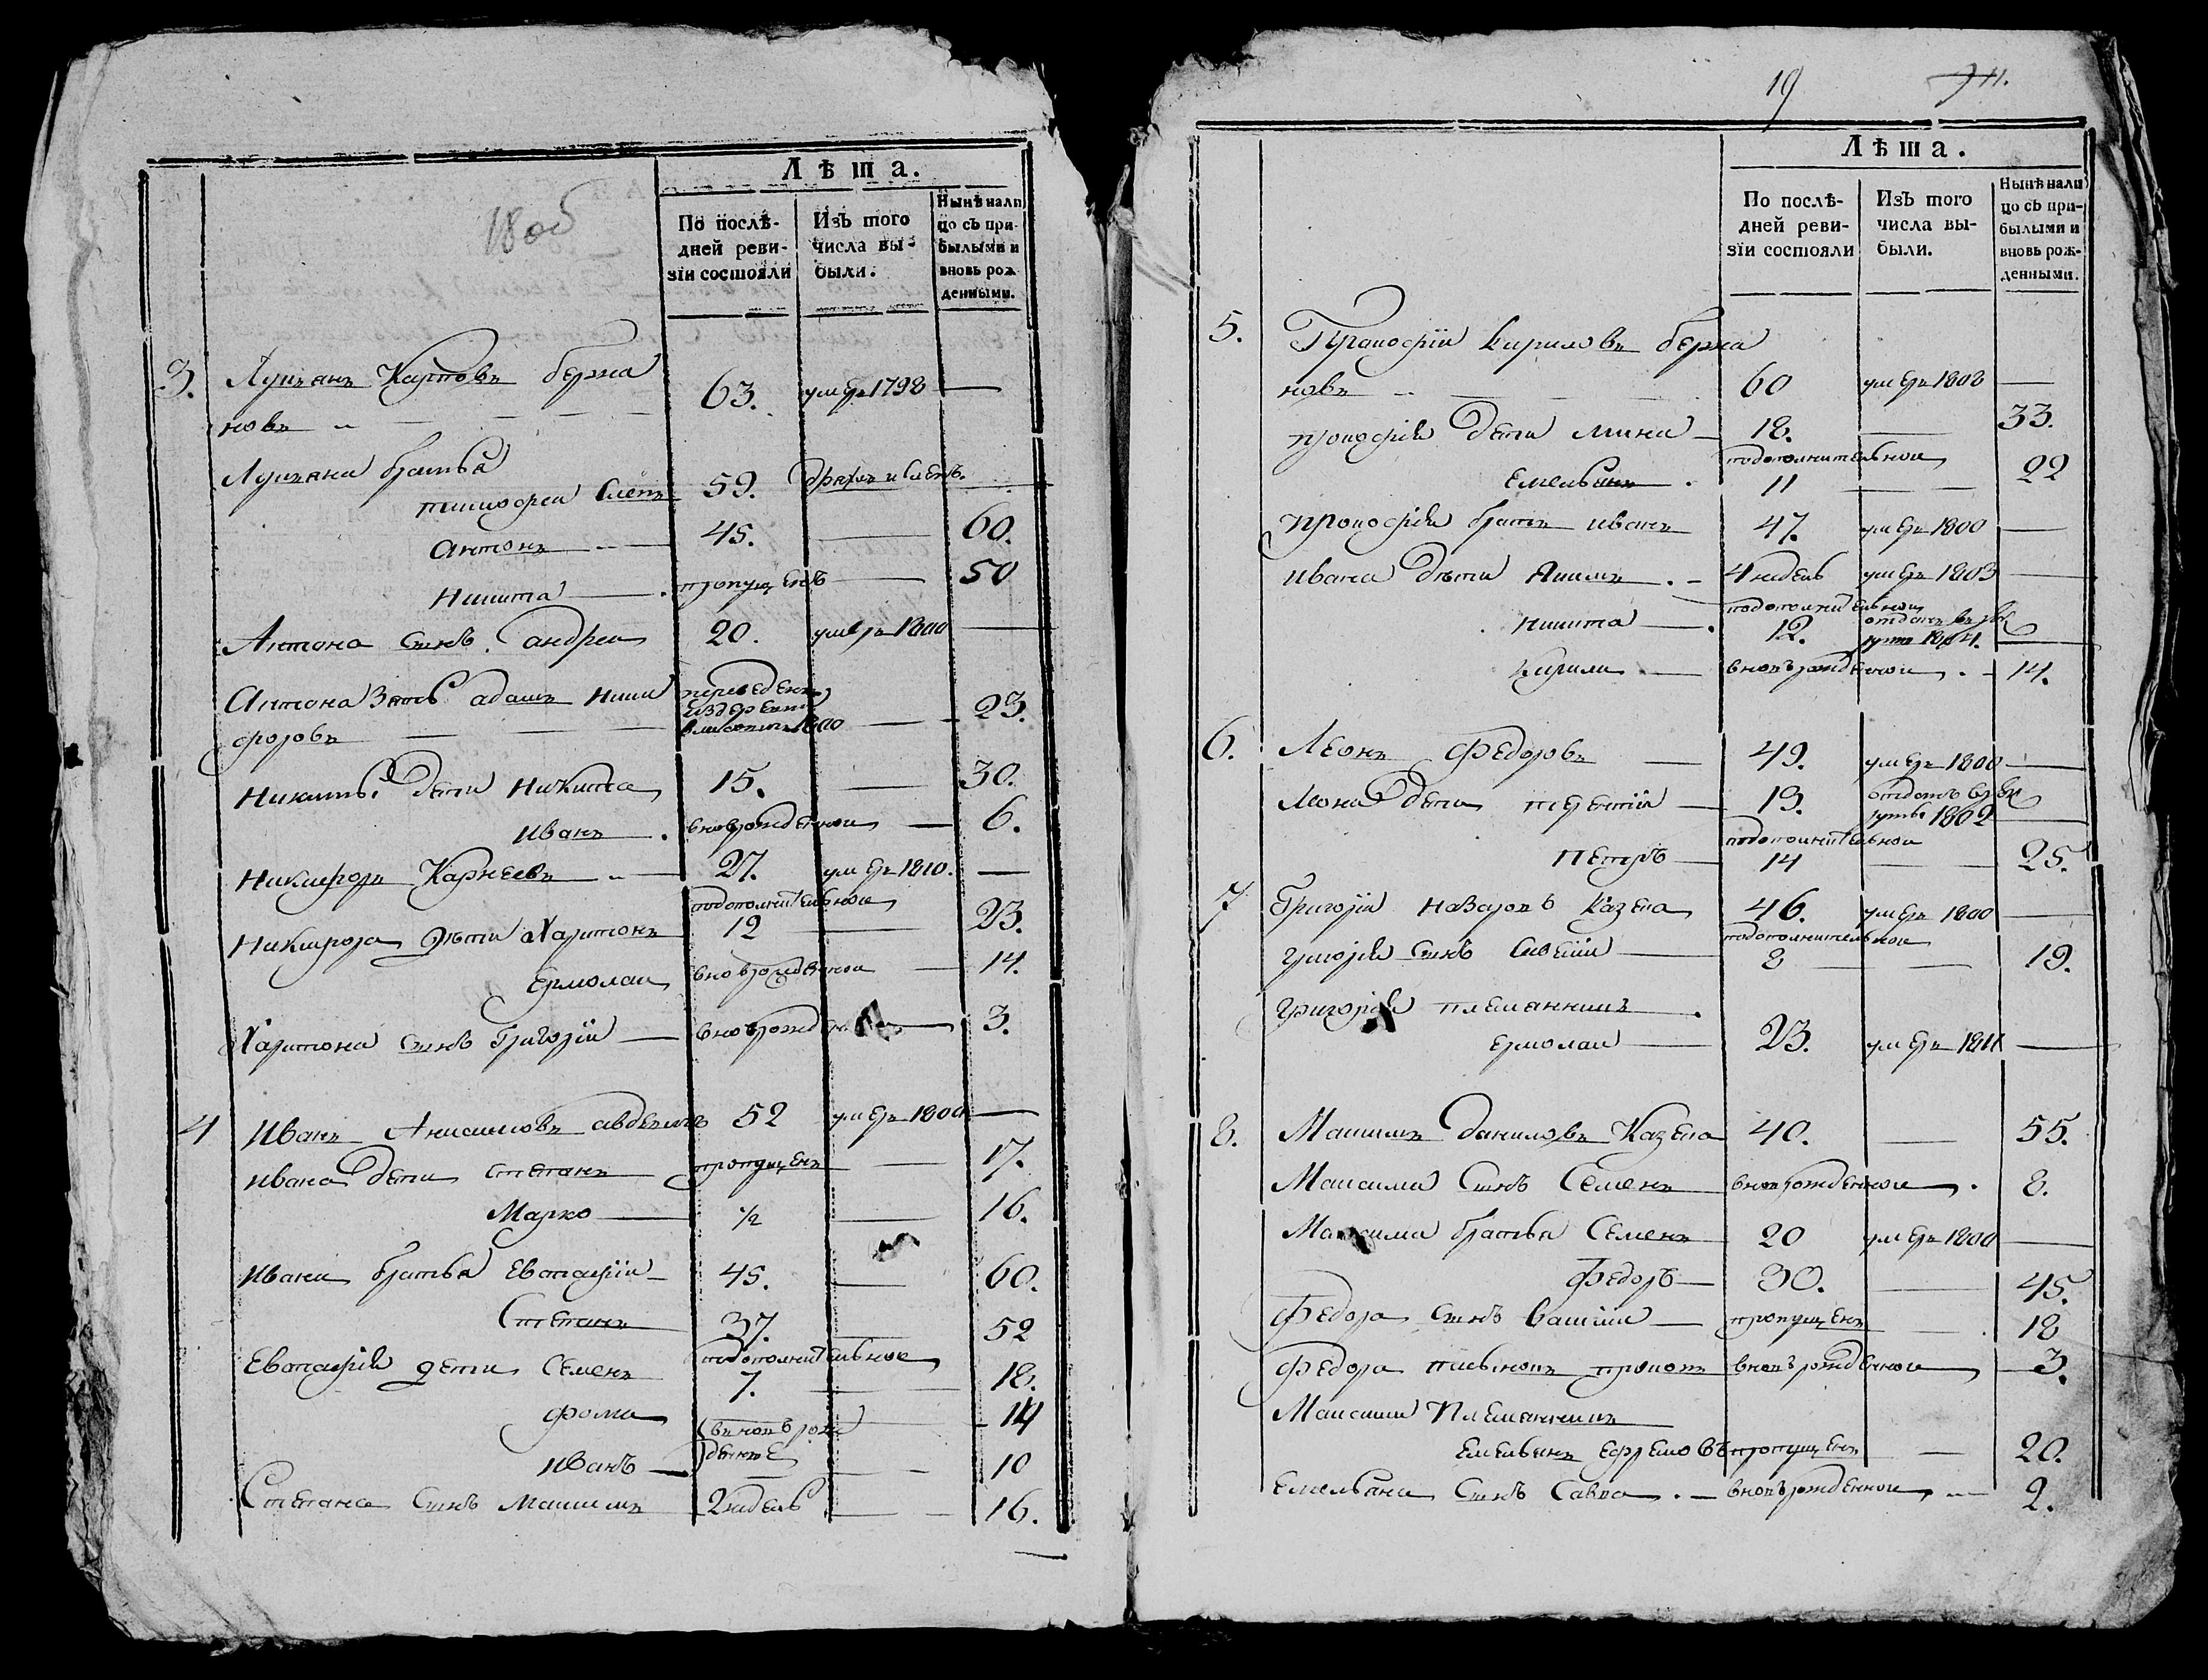 18 об
Лѣта.
По послѣ-
дней реви-
зіи состояли
Изъ того
числа вы-
были.
Нынѣ нали
цо съ при-
былыми и
вновь рож-
денными.
3. Лукьянъ Карповъ бержа 63. умеръ 1798 —
новъ
Лукьяна братья
тимофеи 59. дряхлъ и слепъ.
антонъ 45. — 60.
Никита пропущенъ — 50
Антона сынъ андреи 20. умеръ 1800 —
Антона зять адамъ Ники переведенъ
из деревни
форовъ 1800 — 23.
Никиты дети Никита 15. — 30.
иванъ вновьрожденнои — 6.
Никифоръ Карнеевъ 27. умеръ 1810. —
Никифора дѣти Харитонъ подополнительнои 12 — 23.
Ермолаи вновьрожденнои — 14.
Харитона сынъ Григоріи — 3.
4 Иванъ Анисимовъ 52 умеръ 1800 —
ивана дети степанъ пропущенъ — 17.
Марко 1/2 — 16.
Ивана братья Евстафіи 45. — 60.
Степанъ 37. — 52
Евстафія дети Семенъ подополнительнои 7. — 18.
фома вновьрож — 14
Иванъ денные — 10
Степана сынъ Максимъ 2 недель — 16.
19
Лѣта.
По послѣ-
дней реви-
зіи состояли
Изъ того
числа вы-
были.
Нынѣ нали
цо съ при-
былыми и
вновь рож-
денными.
5. Прокофіи Кириловъ бержа
новъ 60 умеръ 1808 —
прокофія дети мина 18. — 33.
Емельянъ подополнительнои 11 — 22
прокофія братъ иванъ 47. умеръ 1800 —
ивана дѣти Якимъ 4 недель умеръ 1803 —
Никита подополнительнои 12. отданъ в рек
руты 1804. —
Кирила вновьрожденнои — 14.
6. Леонъ Федоровъ 49. умеръ 1800 —
Леона дети терентіи 13. отданъ в рек
руты 1802 —
петръ подополнительнои 14 — 25.
7 Григоріи Назаровъ Казека 46. умеръ 1800 —
григорія сынъ подополнительнои 8 — 19.
григорія племянникъ
ермолаи 23. умеръ 1811 —
8. Максимъ даниловъ Казека 40. — 55.
Максима сынъ Семенъ вновьрожденнои 8.
Максима братья Семенъ 20 умеръ 1800 —
Федоръ 30. — 45.
Федора сынъ василіи пропущенъ — 18
Федора пасынокъ прокопъ вновьрожденнои 3.
Максима племянникъ
емельянъ ефремовъ пропущенъ — 20.
Емельяна сынъ Савка вновьрожденнои 2.